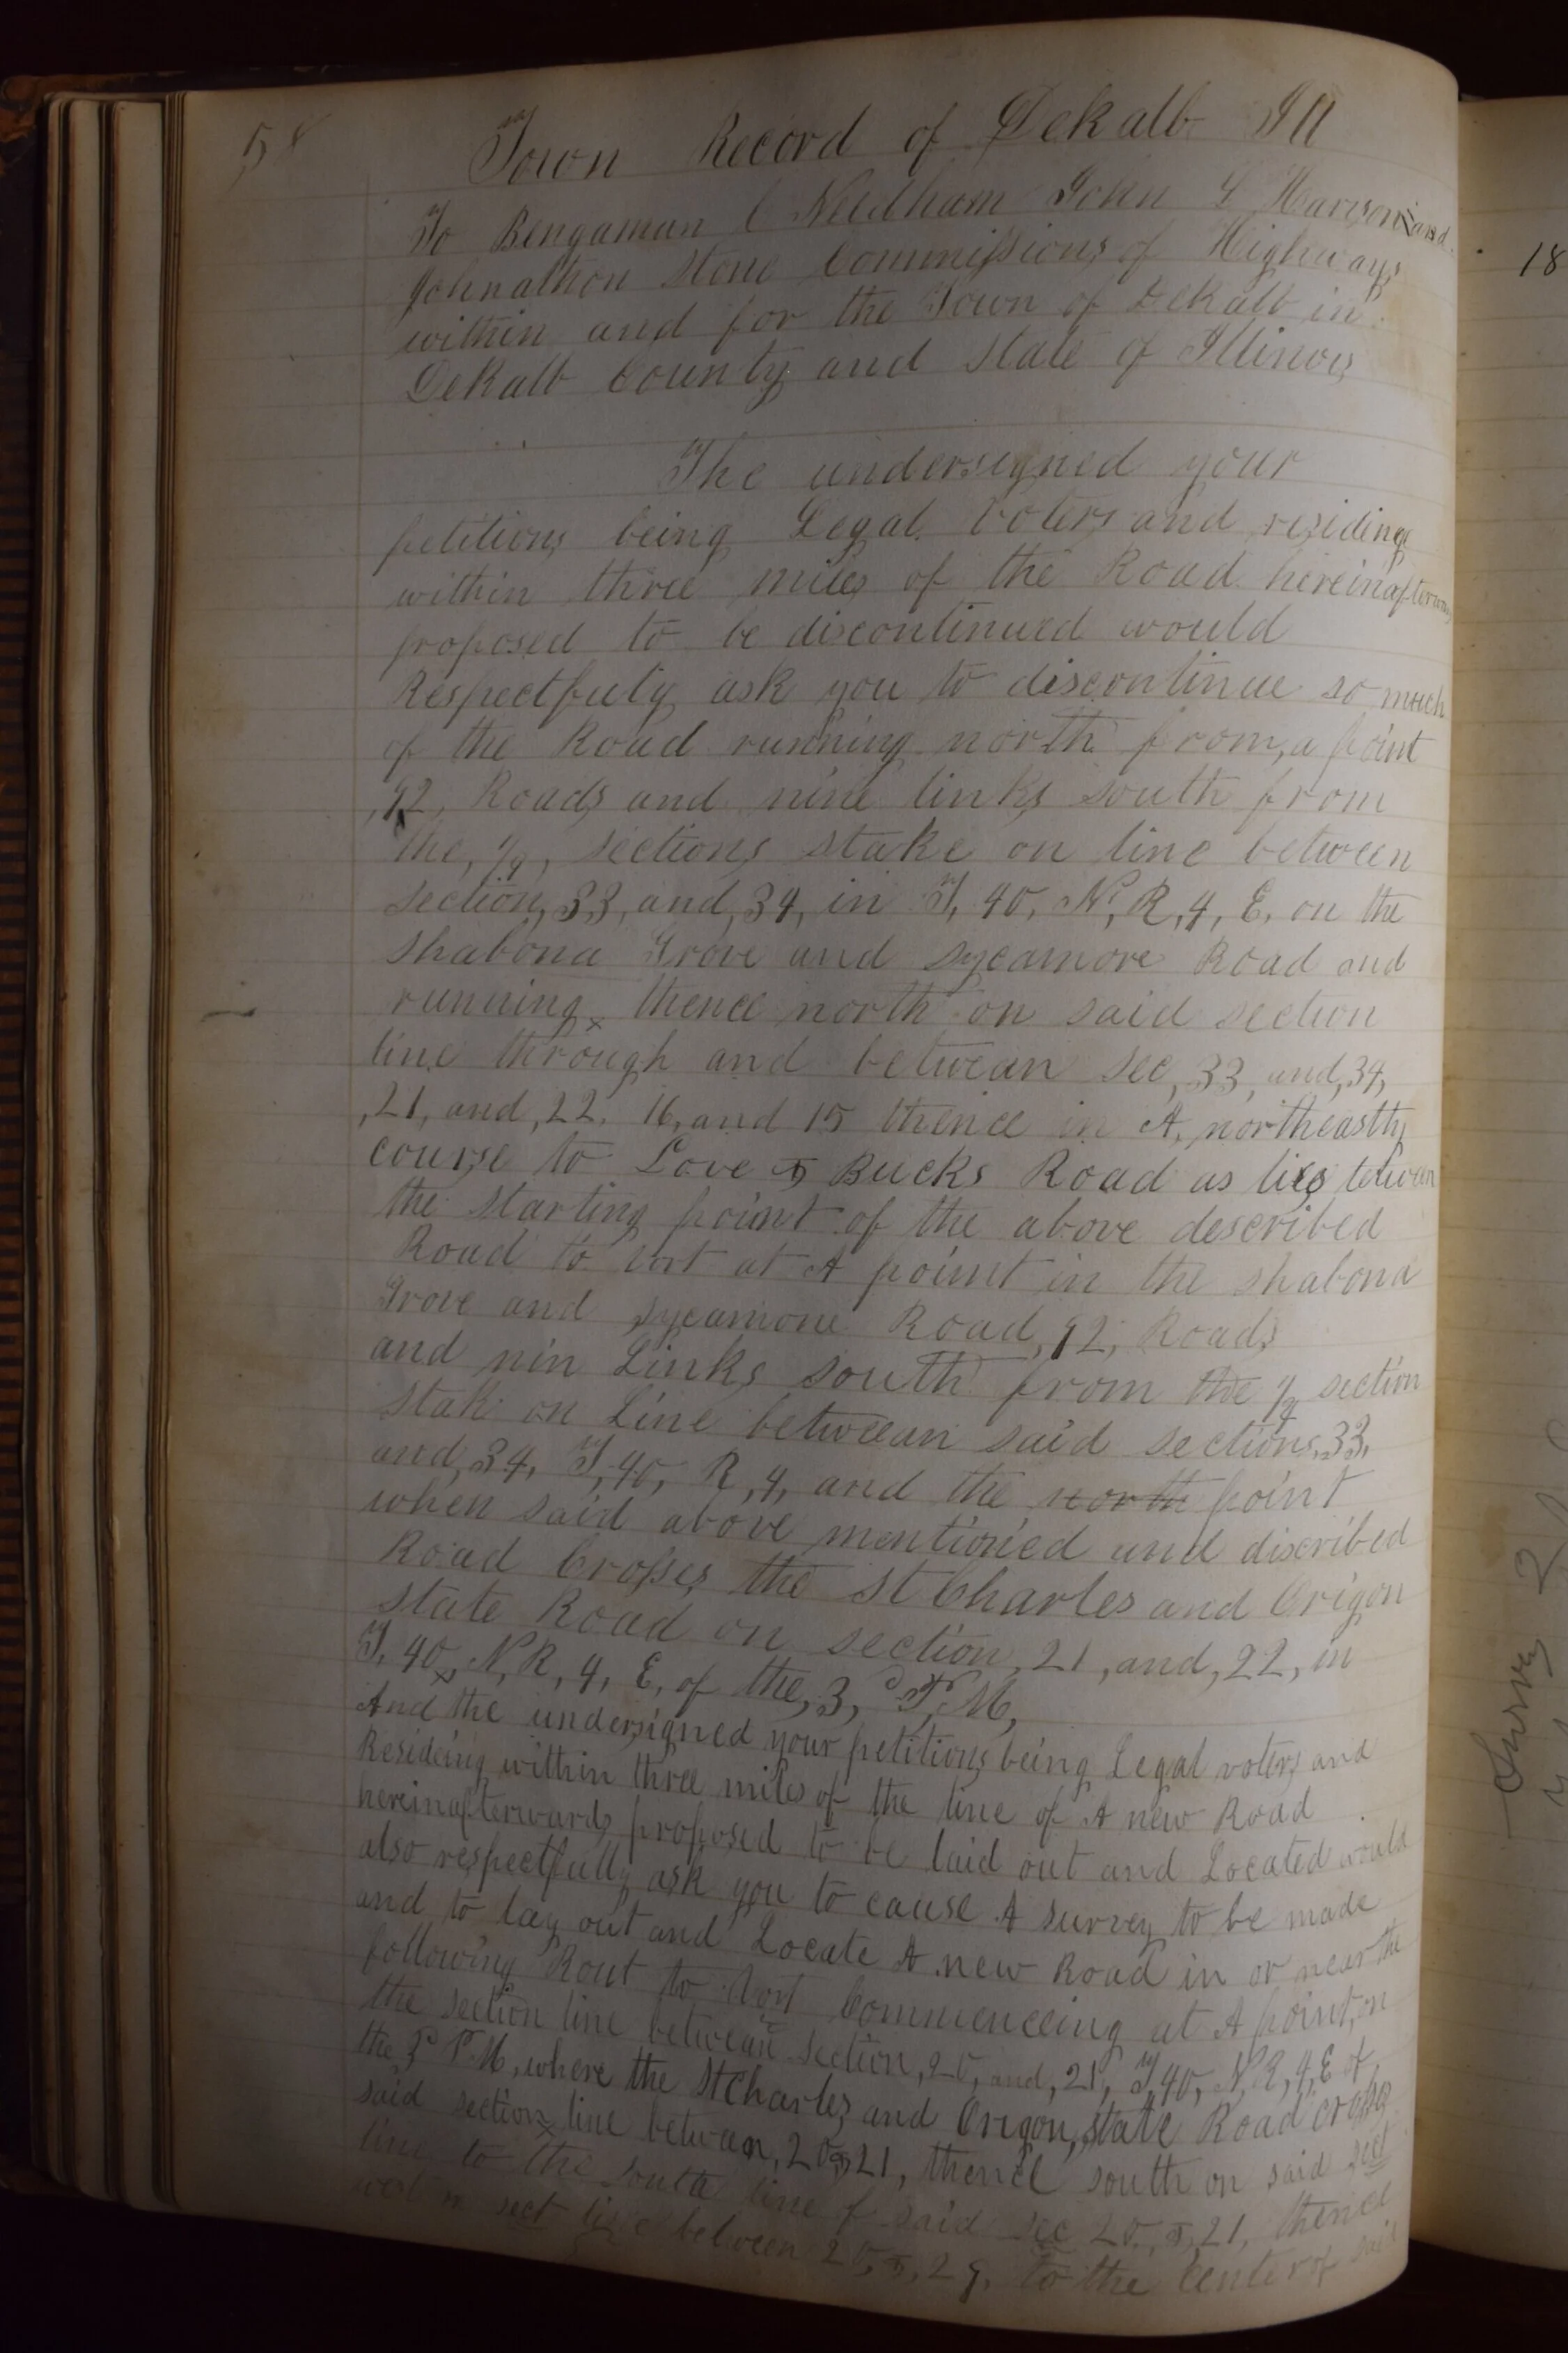 58
Town Record of Dekalb Ill
To Bengaman C Needham John L Harrison and
Johnathon Stone Commissions of Highways
within and for the Town of Dekalb in
Dekalb County and State of Illinois
The undersigned your
petitions being Legal voters and residing
within three miles of the Road hereinafterwards
proposed to be discontinued would
Respectfuly ask you to discontinue so much
of the Road running north from, a point
,92, Roads and nine links south from
the, 1/4, sections stake on line between
section, 33, and, 34, in T, 40, N, R, 4, E, on the
shabona Grove and sycamore Road and
running thence north on said section
line through and betwean sec, 33, and, 34,
,21, and, 22, 16, and 15 thence in A, northeastly
course to Love & Bucks Road as lies between
the starting point of the above described
Road to at A point in the shabona
Grove and sycamore Road, 92, Roads
and nin Links south from the 1/4 section
stak on Line betweean said sections, 33,
and, 34, T, 40, R, 4, and the north point
when said above mentioned and discribed
Road Crosses the St Charles and Origon
state Road on section, 21, and, 22, in
T, 40, N, R, 4, E, of the, 3, d P, M,
And the undersigned your petitions being Legal voters and
Resideing within three miles of the line of A new Road
hereinafterwards proposed to be laid out and Located would
also respectfully ask you to cause A survey to be made
and to lay out and Locate A new Road in or near the
following Rout to Commenceing at A point, on
the section line betwean section, 20, and, 21, T, 40, N, R, 4, E of
the 3d P. M, where the St Charles and Origon, state Road crosses
said section line betwean, 20, & 21, thence south on said sect
line to the south line of said sec 20, &, 21, thence
west on sect line between 20, &, 29, to the Center of said
18
Survey